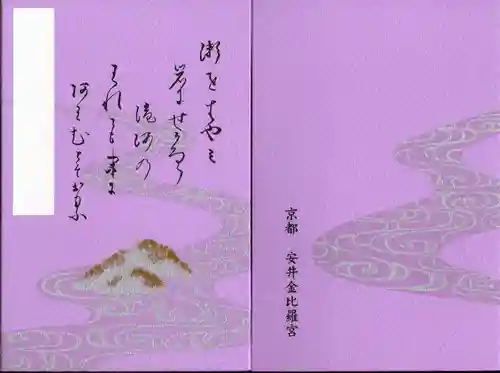 瀬をはやミ
岩にせかるゝ
滝河の
われても末に
阿はむとそおもふ
京都　安井金比羅宮